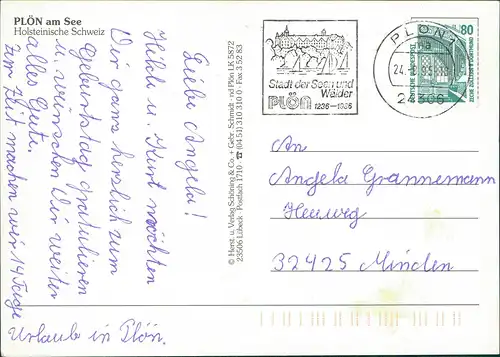 PLÖN am See
Holsteinische Schweiz
Liebe Angela!
Hilde u. Kurt möchten
Dir ganz herzlich zum
Geburtstag gratulieren
u. wünschen Dir weiter
alles Gute.
Zur Zeit machen wir 14 Tage
Urlaub in Plön.
© Horst. u. Verlag Schöning & Co. + Gebr. Schmidt · nd Plön LK 5872
23506 Lübeck · Postfach 1710 · ☎ (04 51) 310 310 0 · Fax 3 52 83
Stadt der Seen und
Wälder
PLÖN 1236-1986
PLÖN 1
24306
80
DEUTSCHE BUNDESPOST
ZECHE ZOLLERN II DORTMUND
An
Angela Grannemann
Heuweg
32425 Minden